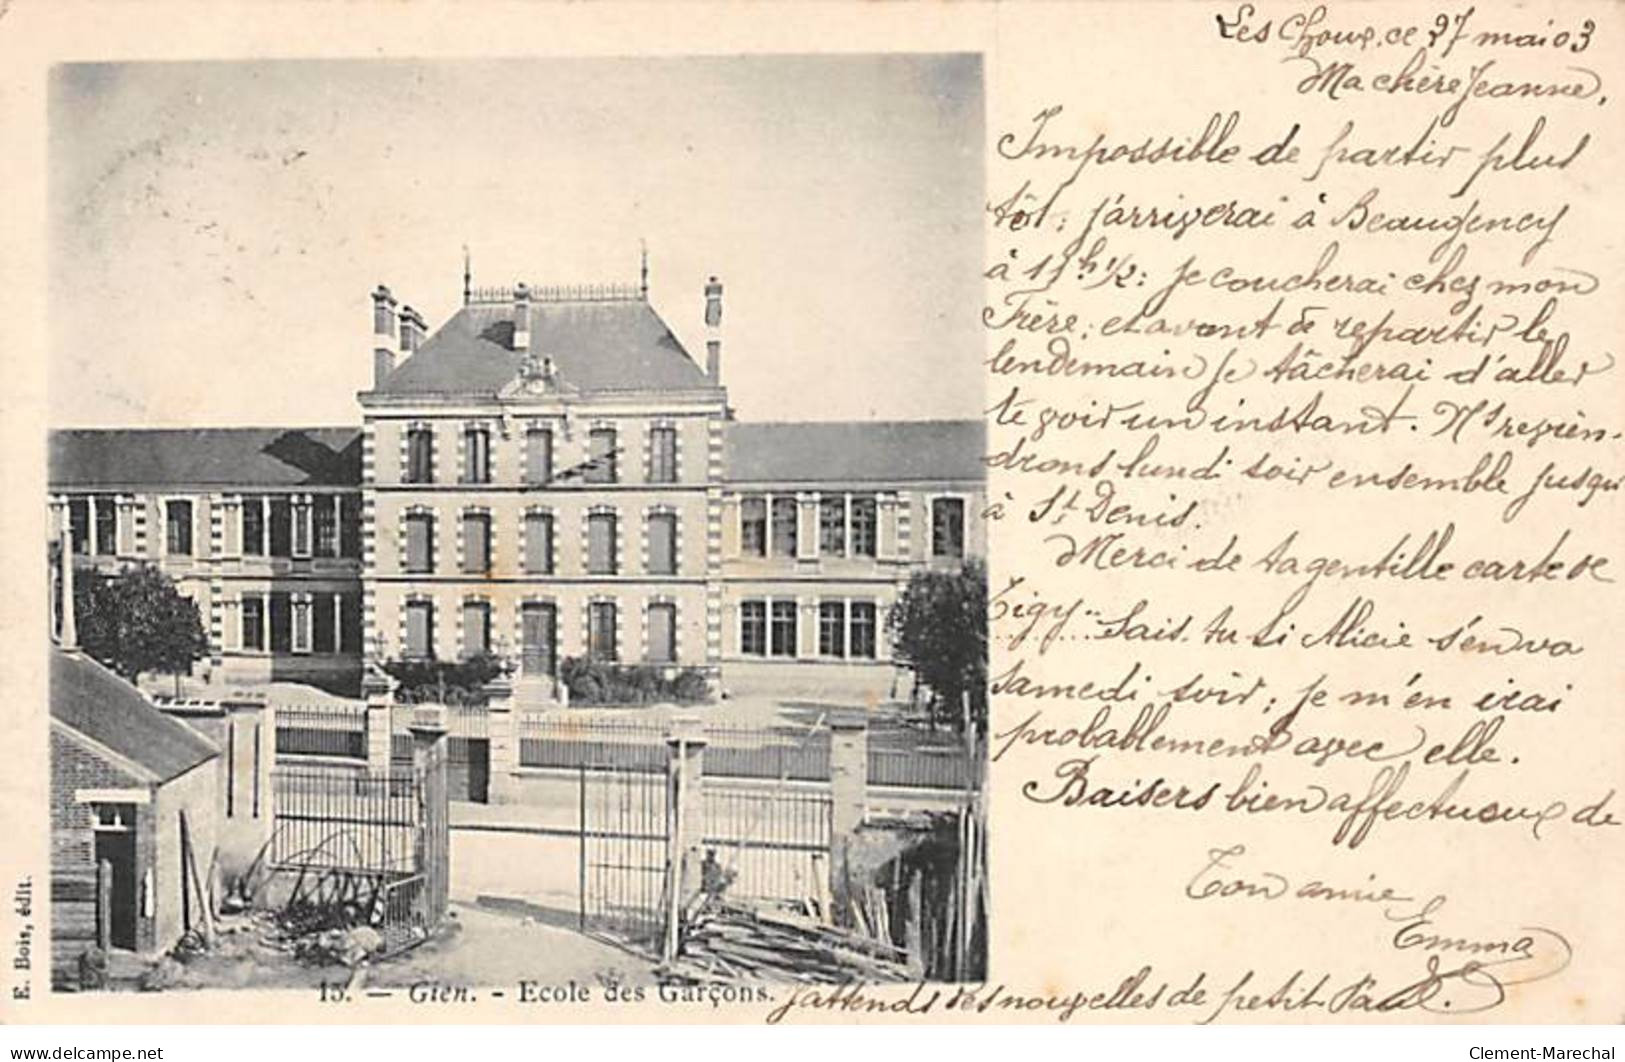 Les Choux, ce 27 mai 03
Ma chère Jeanne,
Impossible de partir plus
tôt; j'arriverai à Beaugency
à 11h 1/2: je coucherai chez mon
Frère; et avant de repartir le
lendemain je tâcherai d'aller
te voir un instant. Ns revien-
drons lundi soir ensemble jusqu'
à St Denis.
Merci de ta gentille carte de
Tigy... Sais-tu si Alicie s'en va
samedi soir; je m'en irai
probablement avec elle.
Baisers bien affectueux de
Ton amie
Emma
J'attends des nouvelles de petit Paul.
15. — Gien. - Ecole des Garçons.
E. Bois, édit.
www.delcampe.net
Clement-Marechal